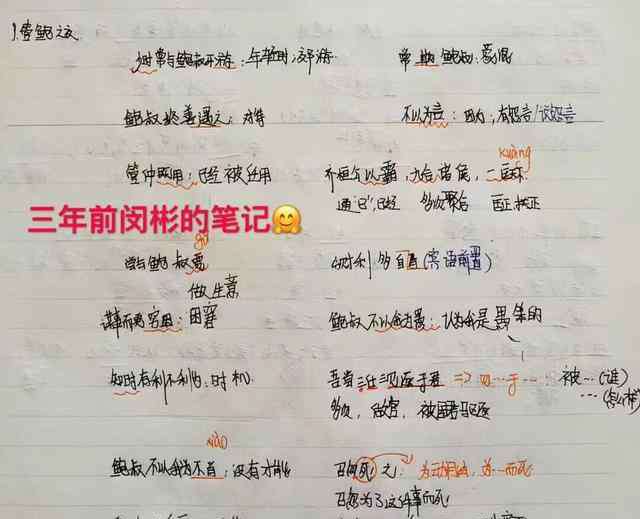 1.管鲍之交
少时常与鲍叔牙游：年轻时；交游 常期鲍叔：欺
鲍叔终善遇之：对待 不以为言：因为；有怨言/说怨言
管仲既用：已经 被任用 齐桓公以霸，九合诸侯，一匡
kuāng
通"已"，已经 多次聚合 匡正扶正
三年前闵彬的笔记🤗
gǔ
尝与鲍叔贾 分财利多自与（宾语前置）
做生意
谋事而更穷困：困窘 鲍叔不以我为愚：认为我是愚笨的
知时有利不利也：时机 吾尝三仕三见逐于君 => 见…于… 被…(谁)
…(怎么样)
多次，做官，被国君驱逐
xiào
鲍叔不以我为不肖：没有才能 召忽死之：为动用法，为…而死
召忽为了这件事而死